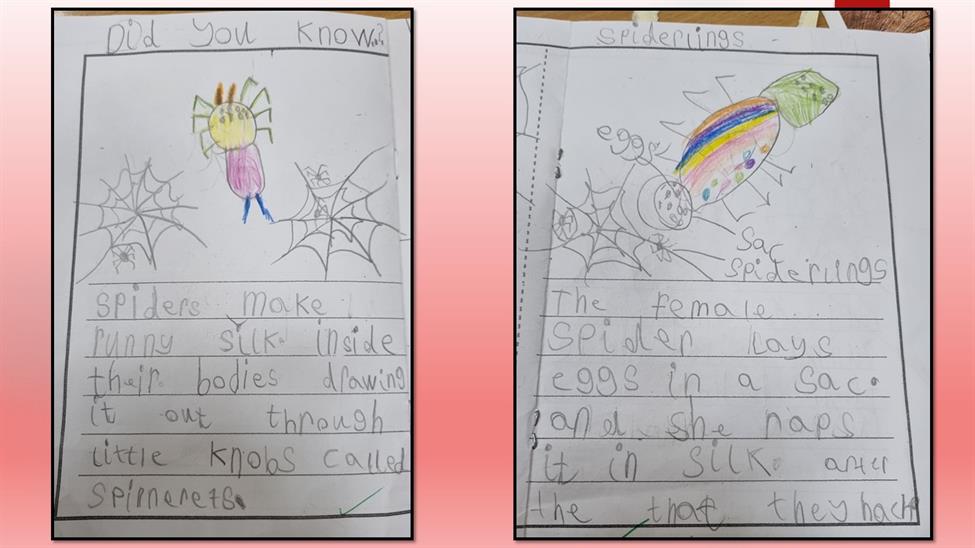 Did You Know..?
spiders make
runny silk. inside
their bodies drawing
it out through
little knobs called
spinnerets.
Spiderlings
egg
Sac
Spiderlings
The female
spider lays
eggs in a sac.
and she raps
it in silk. after
the that they hach